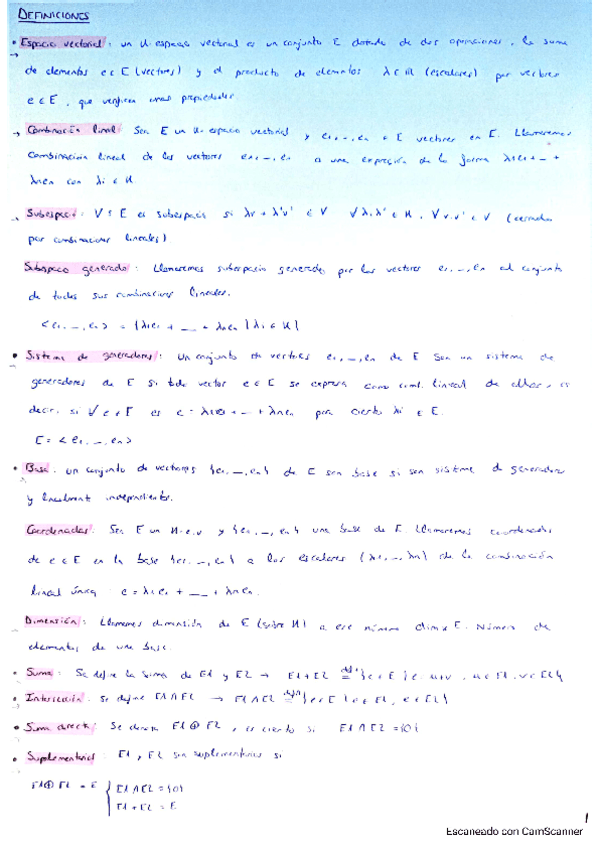 DEFINICIONES
• Espacio vectorial: un K-espacio vectorial es un conjunto E dotado de dos operaciones, la suma
de elementos e ∈ E (vectores) y el producto de elementos λ ∈ K (escalares) por vectores
e ∈ E, que verifican unas propiedades.
→ Combinación lineal: Sea E un K-espacio vectorial y e1,...,en ∈ E vectores en E. Llamaremos
combinación lineal de los vectores e1,...,en a una expresión de la forma λ1e1 + ... +
λnen con λi ∈ K.
→ Subespacio: V ⊆ E es subespacio si λv + λ'v' ∈ V ∀λ,λ' ∈ K, ∀v,v' ∈ V (cerrado
por combinaciones lineales)
Subespacio generado: Llamaremos subespacio generado por los vectores e1,...,en al conjunto
de todas sus combinaciones lineales.
<e1,...,en> = {λ1e1 + ... + λnen | λi ∈ K}
• Sistema de generadores: un conjunto de vectores e1,...,en de E son un sistema de
generadores de E si todo vector e ∈ E se expresa como comb. lineal de ellos, es
decir, si ∀e ∈ E es e = λ1e1 + ... + λnen para ciertos λi ∈ E.
E = <e1,...,en>
• Base: un conjunto de vectores {e1,...,en} de E son base si son sistema de generadores
y linealmente independientes.
Coordenadas: Sea E un K-e.v y {e1,...,en} una base de E. Llamaremos coordenadas
de e ∈ E en la base {e1,...,en} a los escalares (λ1,...,λn) de la combinación
lineal única: e = λ1e1 + ... + λnen.
Dimensión: Llamamos dimensión de E (sobre K) a ese número dimK E. Número de
elementos de una base.
• Suma: Se define la suma de E1 y E2 → E1+E2 = {e ∈ E | e = u+v, u ∈ E1, v ∈ E2}
• Intersección: Se define E1∩E2 → E1∩E2 = {e ∈ E | e ∈ E1, e ∈ E2}
• Suma directa: Se denota E1⊕E2, es cierto si E1∩E2 = {0}
• Suplementarios: E1, E2 son suplementarios si
E1⊕E2 = E { E1∩E2 = {0}
E1+E2 = E
1
Escaneado con CamScanner